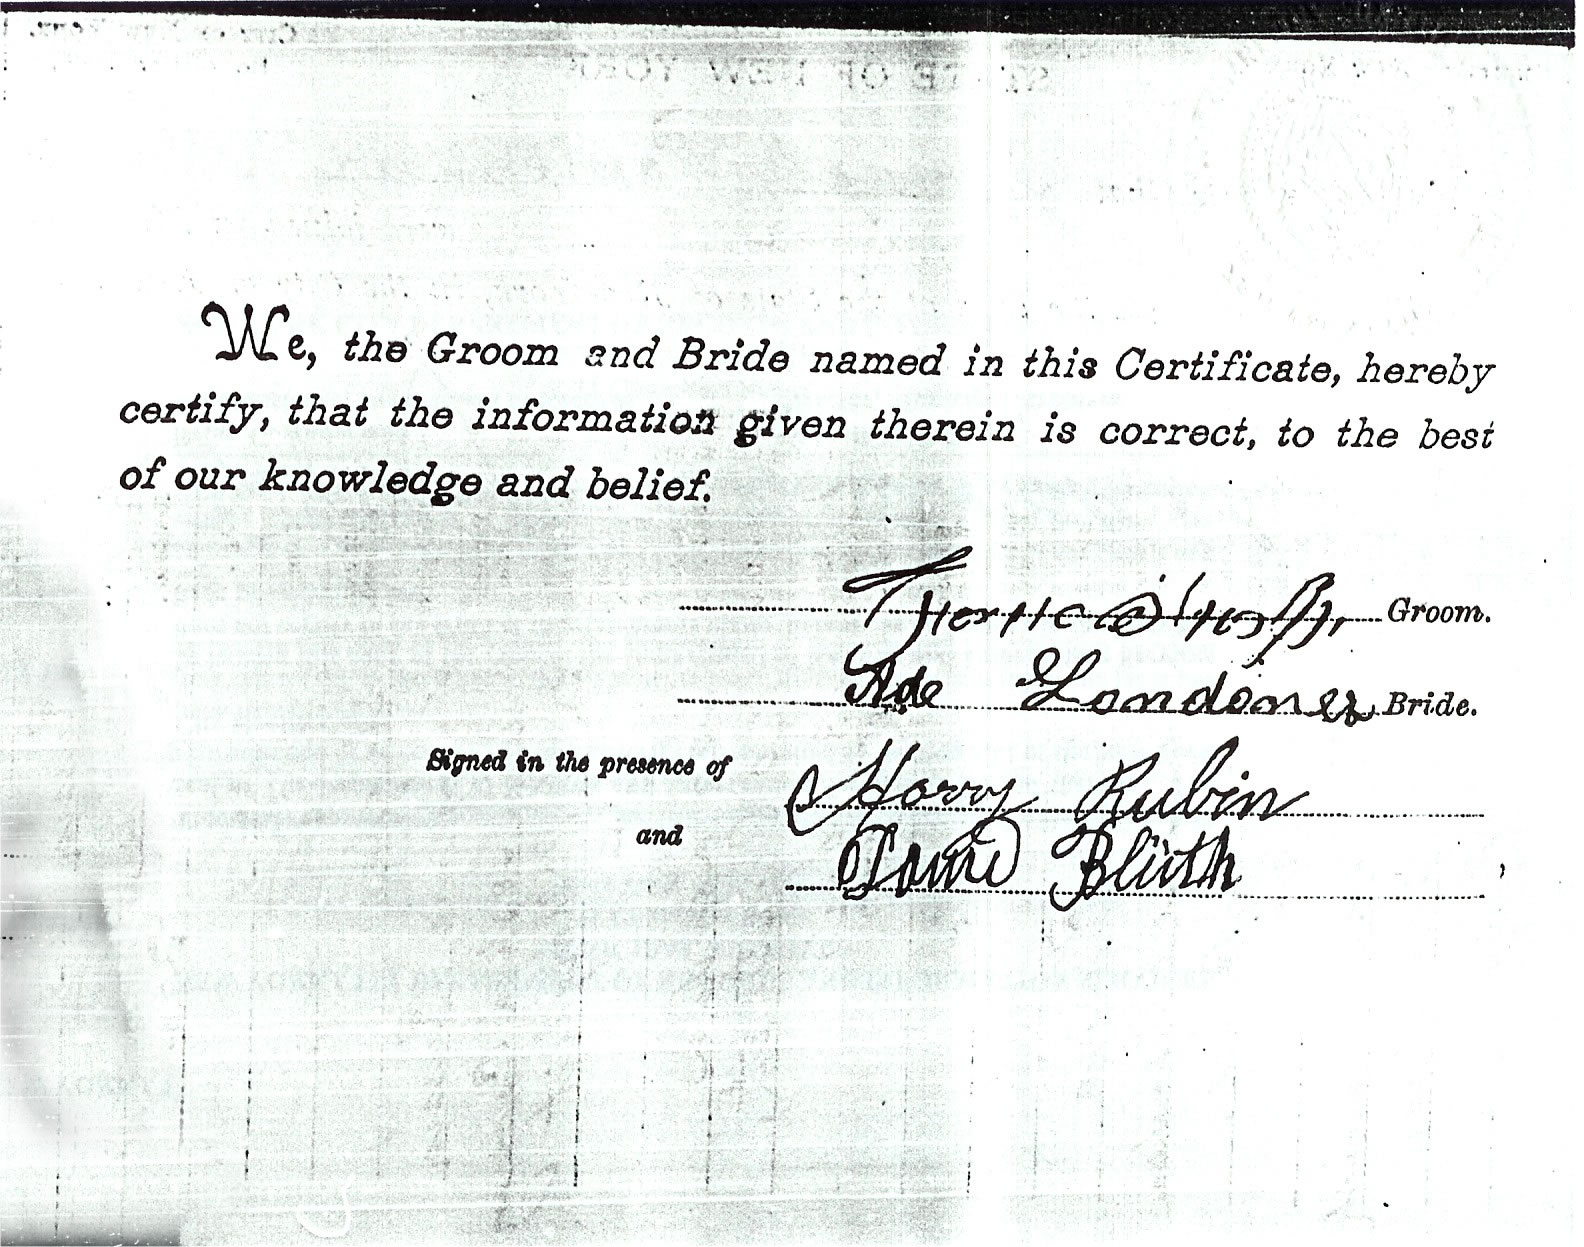 STATE OF NEW YORK
We, the Groom and Bride named in this Certificate, hereby
certify, that the information given therein is correct, to the best
of our knowledge and belief.
Groom.
Ade Londoner Bride.
Signed in the presence of Harry Rubin
and Blüth